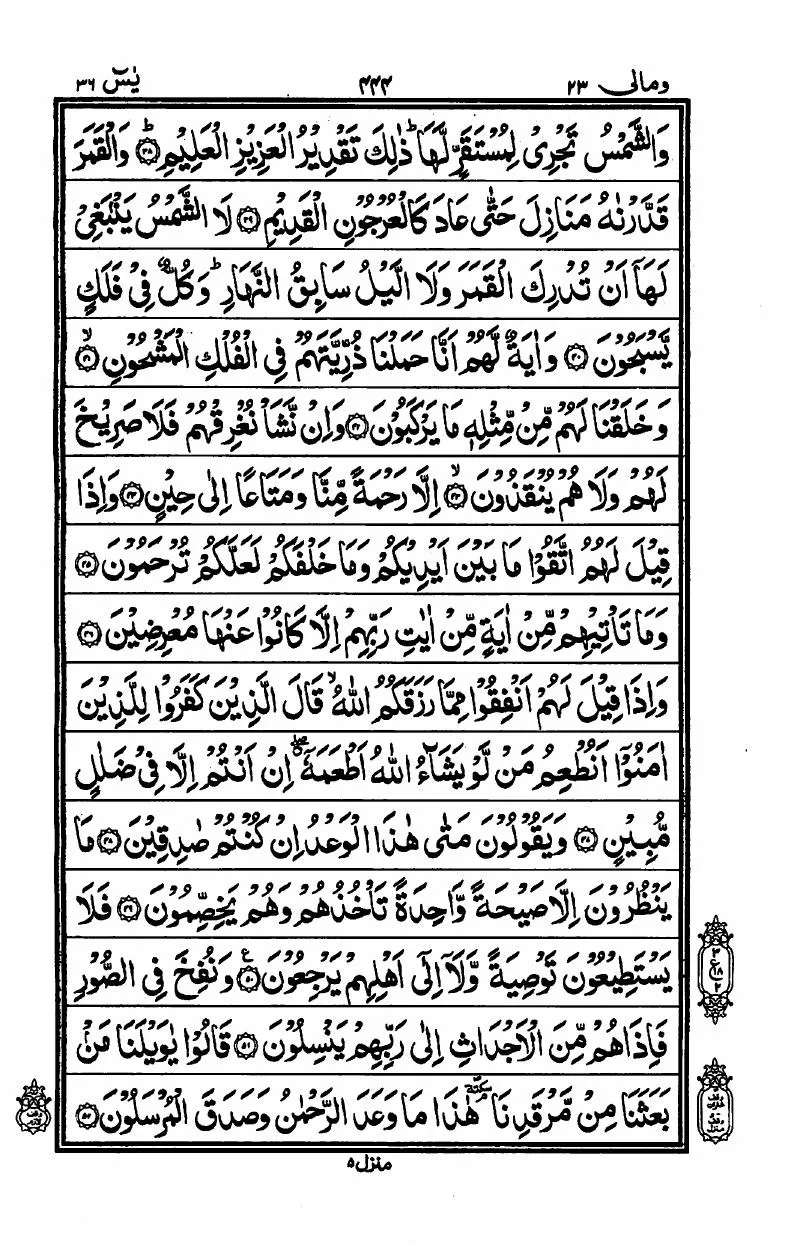 ومالی ۲۳ ۴۴۴ یٰسٓ ۳۶
وَالشَّمْسُ تَجْرِیْ لِمُسْتَقَرٍّ لَّهَا ؕ ذٰلِكَ تَقْدِیْرُ الْعَزِیْزِ الْعَلِیْمِ ۟ؕ۳۸ وَالْقَمَرَ
قَدَّرْنٰهُ مَنَازِلَ حَتّٰی عَادَ كَالْعُرْجُوْنِ الْقَدِیْمِ ۳۹ لَا الشَّمْسُ یَنْۢبَغِیْ
لَهَاۤ اَنْ تُدْرِكَ الْقَمَرَ وَلَا الَّیْلُ سَابِقُ النَّهَارِ ؕ وَكُلٌّ فِیْ فَلَكٍ
یَّسْبَحُوْنَ ۴۰ وَاٰیَةٌ لَّهُمْ اَنَّا حَمَلْنَا ذُرِّیَّتَهُمْ فِی الْفُلْكِ الْمَشْحُوْنِ ۙ۴۱
وَخَلَقْنَا لَهُمْ مِّنْ مِّثْلِهٖ مَا یَرْكَبُوْنَ ۴۲ وَاِنْ نَّشَاْ نُغْرِقْهُمْ فَلَا صَرِیْخَ
لَهُمْ وَلَا هُمْ یُنْقَذُوْنَ ۙ۴۳ اِلَّا رَحْمَةً مِّنَّا وَمَتَاعًا اِلٰی حِیْنٍ ۴۴ وَاِذَا
قِیْلَ لَهُمُ اتَّقُوْا مَا بَیْنَ اَیْدِیْكُمْ وَمَا خَلْفَكُمْ لَعَلَّكُمْ تُرْحَمُوْنَ ۴۵
وَمَا تَاْتِیْهِمْ مِّنْ اٰیَةٍ مِّنْ اٰیٰتِ رَبِّهِمْ اِلَّا كَانُوْا عَنْهَا مُعْرِضِیْنَ ۴۶
وَاِذَا قِیْلَ لَهُمْ اَنْفِقُوْا مِمَّا رَزَقَكُمُ اللّٰهُ ۙ قَالَ الَّذِیْنَ كَفَرُوْا لِلَّذِیْنَ
اٰمَنُوْۤا اَنُطْعِمُ مَنْ لَّوْ یَشَآءُ اللّٰهُ اَطْعَمَهٗۤ ۖ اِنْ اَنْتُمْ اِلَّا فِیْ ضَلٰلٍ
مُّبِیْنٍ ۴۷ وَیَقُوْلُوْنَ مَتٰی هٰذَا الْوَعْدُ اِنْ كُنْتُمْ صٰدِقِیْنَ ۴۸ مَا
یَنْظُرُوْنَ اِلَّا صَیْحَةً وَّاحِدَةً تَاْخُذُهُمْ وَهُمْ یَخِصِّمُوْنَ ۴۹ فَلَا
یَسْتَطِیْعُوْنَ تَوْصِیَةً وَّلَاۤ اِلٰۤی اَهْلِهِمْ یَرْجِعُوْنَ ۵۰ ع وَنُفِخَ فِی الصُّوْرِ
فَاِذَا هُمْ مِّنَ الْاَجْدَاثِ اِلٰی رَبِّهِمْ یَنْسِلُوْنَ ۵۱ قَالُوْا یٰوَیْلَنَا مَنْۢ
بَعَثَنَا مِنْ مَّرْقَدِنَا ۘ سكتة هٰذَا مَا وَعَدَ الرَّحْمٰنُ وَصَدَقَ الْمُرْسَلُوْنَ ۵۲
منزل ۵
۳
ع ۱۸
۲